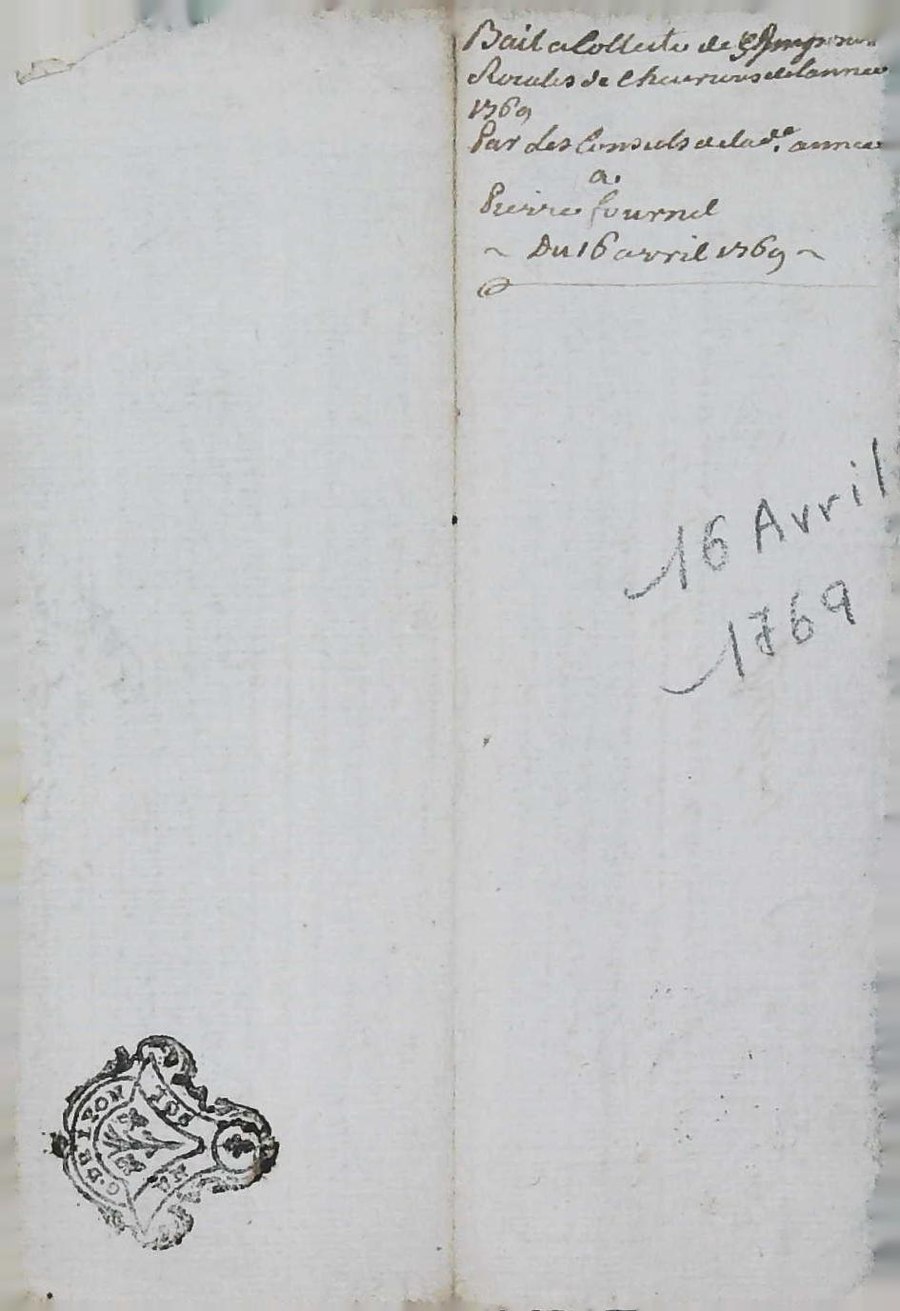 Bail a Collecte de
Roialles de Chevrieres de l'annee
1769
Par les Consuls de lad.e annee
a.
Pierre fournel
~ Du 16 avril 1769 ~
16 Avril
1769
G. DE LYON